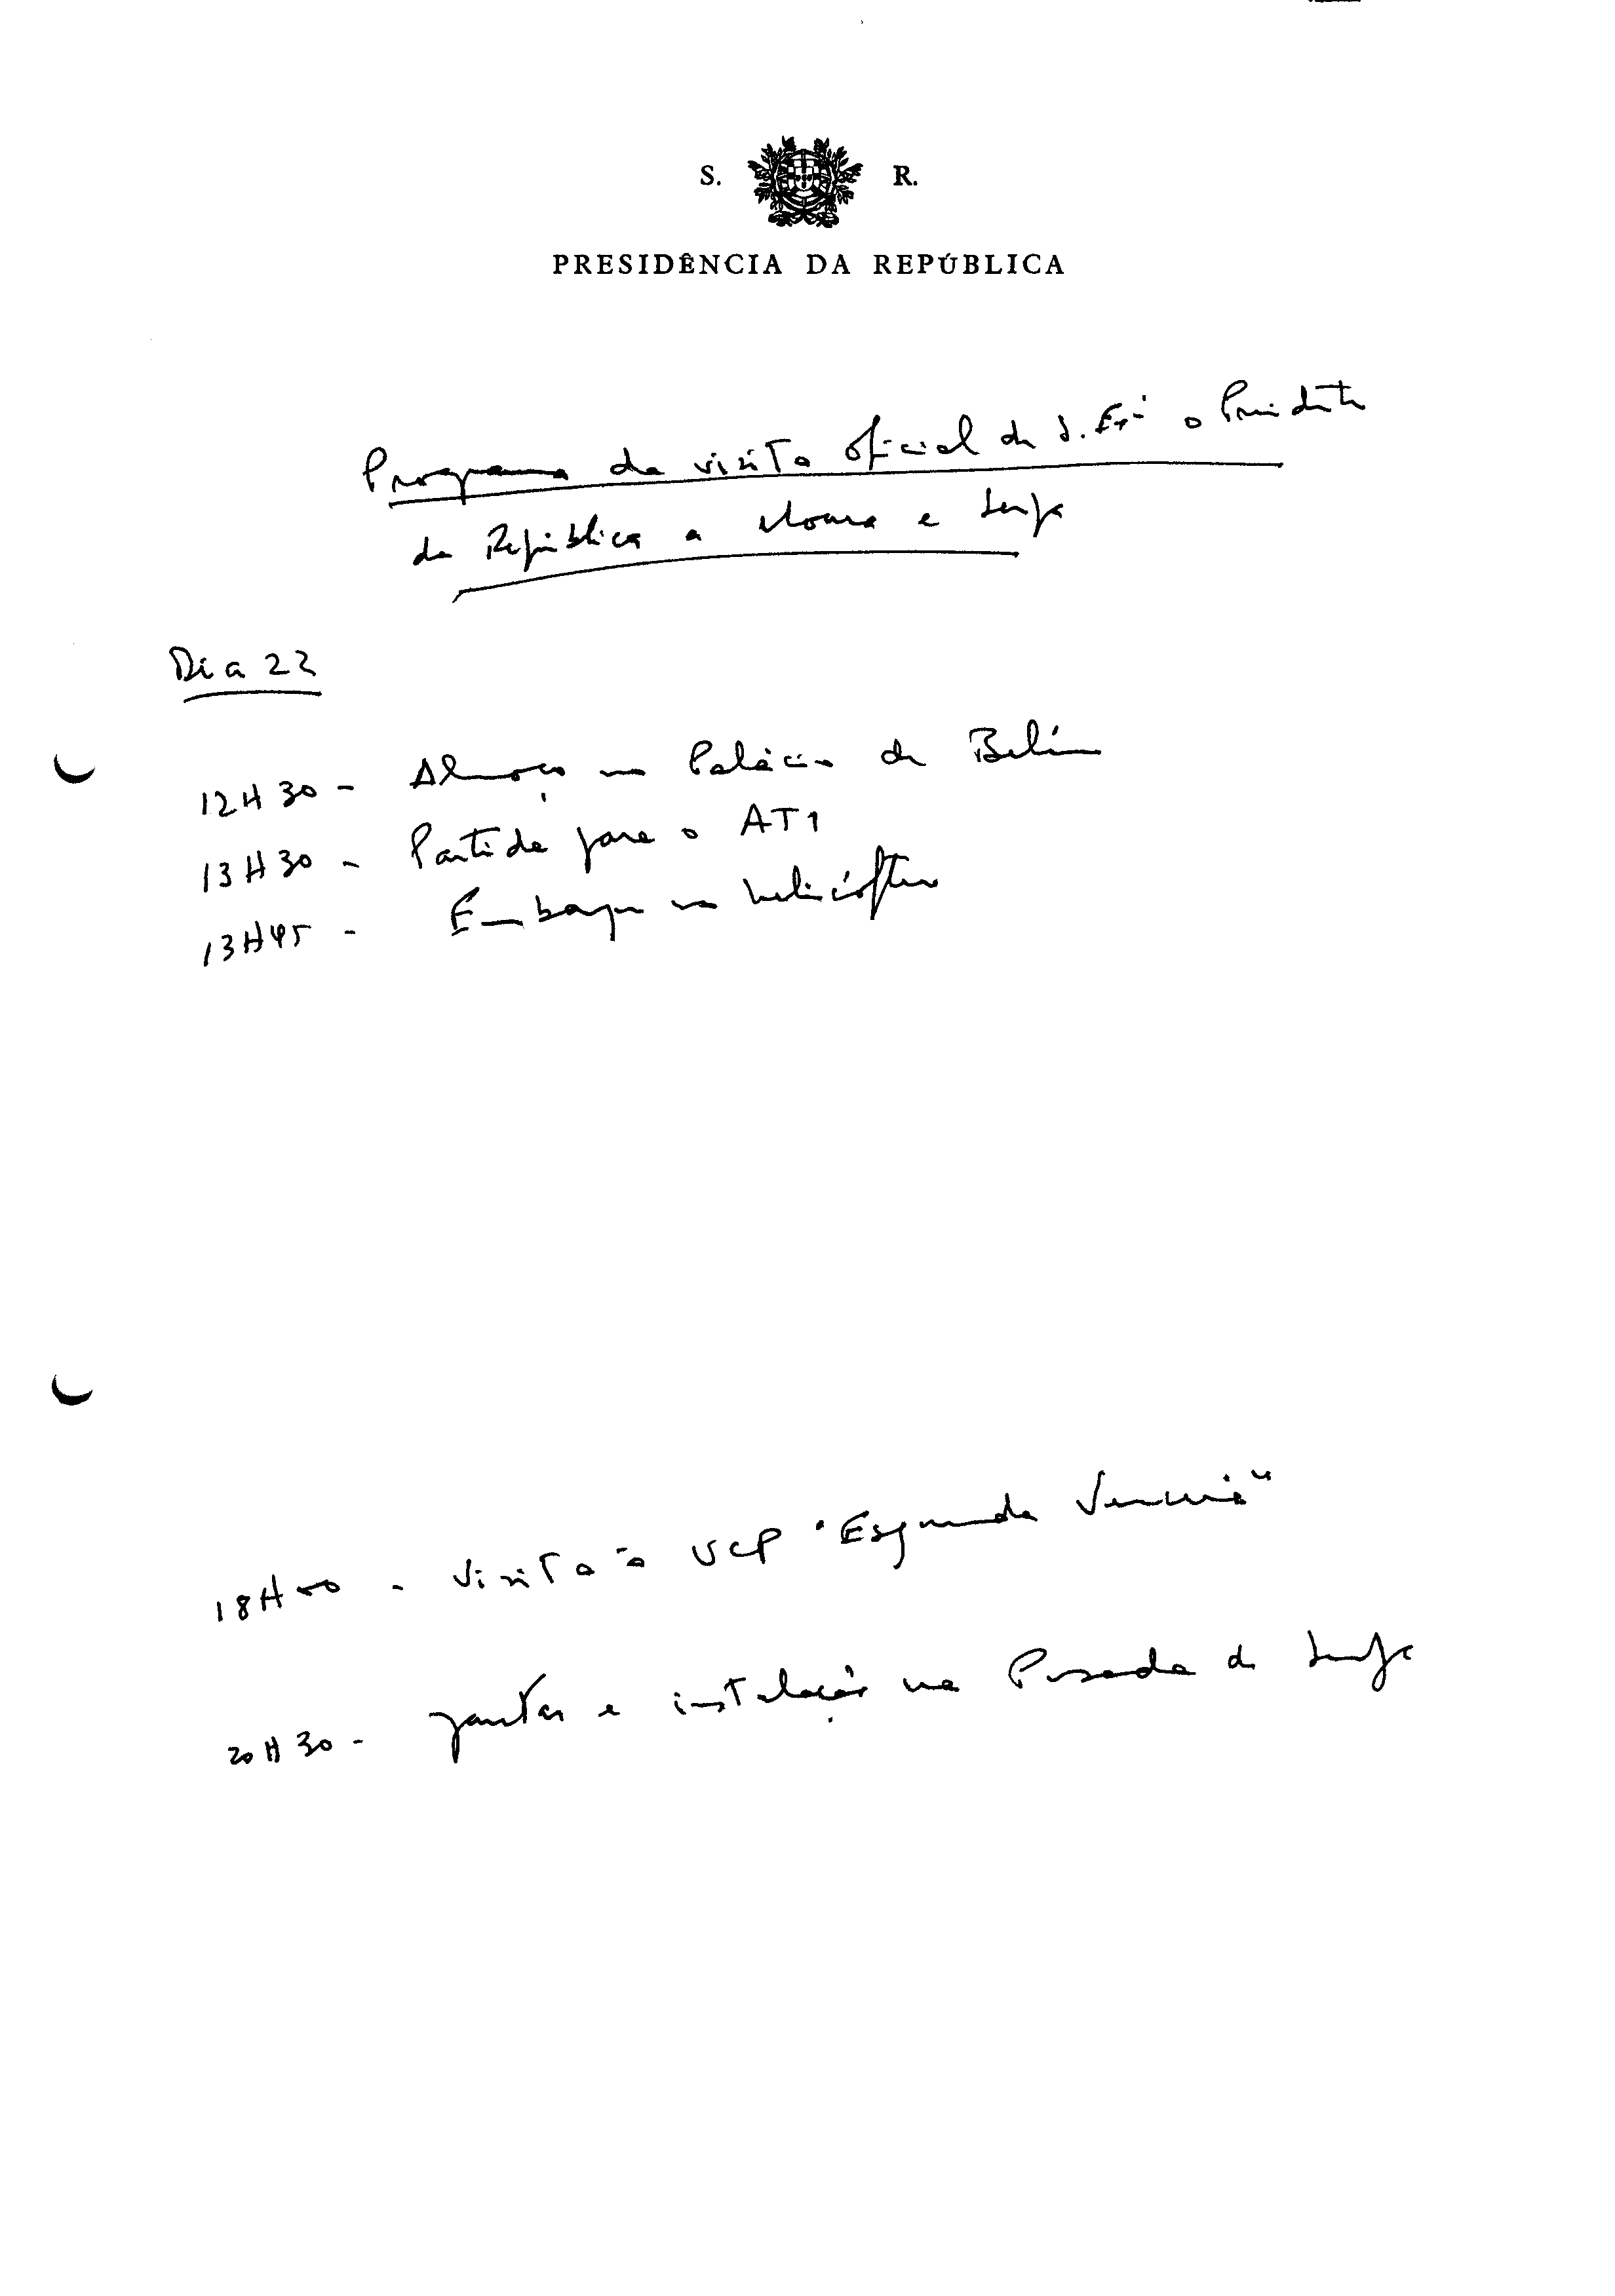 S. R.
PRESIDÊNCIA DA REPÚBLICA
Programa da visita oficial de S. Exª o Presidente
da República a Moura e Serpa
Dia 22
12H30 - Almoço no Palácio de Belém
13H30 - Partida para o AT1
13H45 - Embarque no helicóptero
18H00 - Visita à UCP "Esquerda Vencerá"
20H30 - Jantar e instalação na Pousada de Serpa